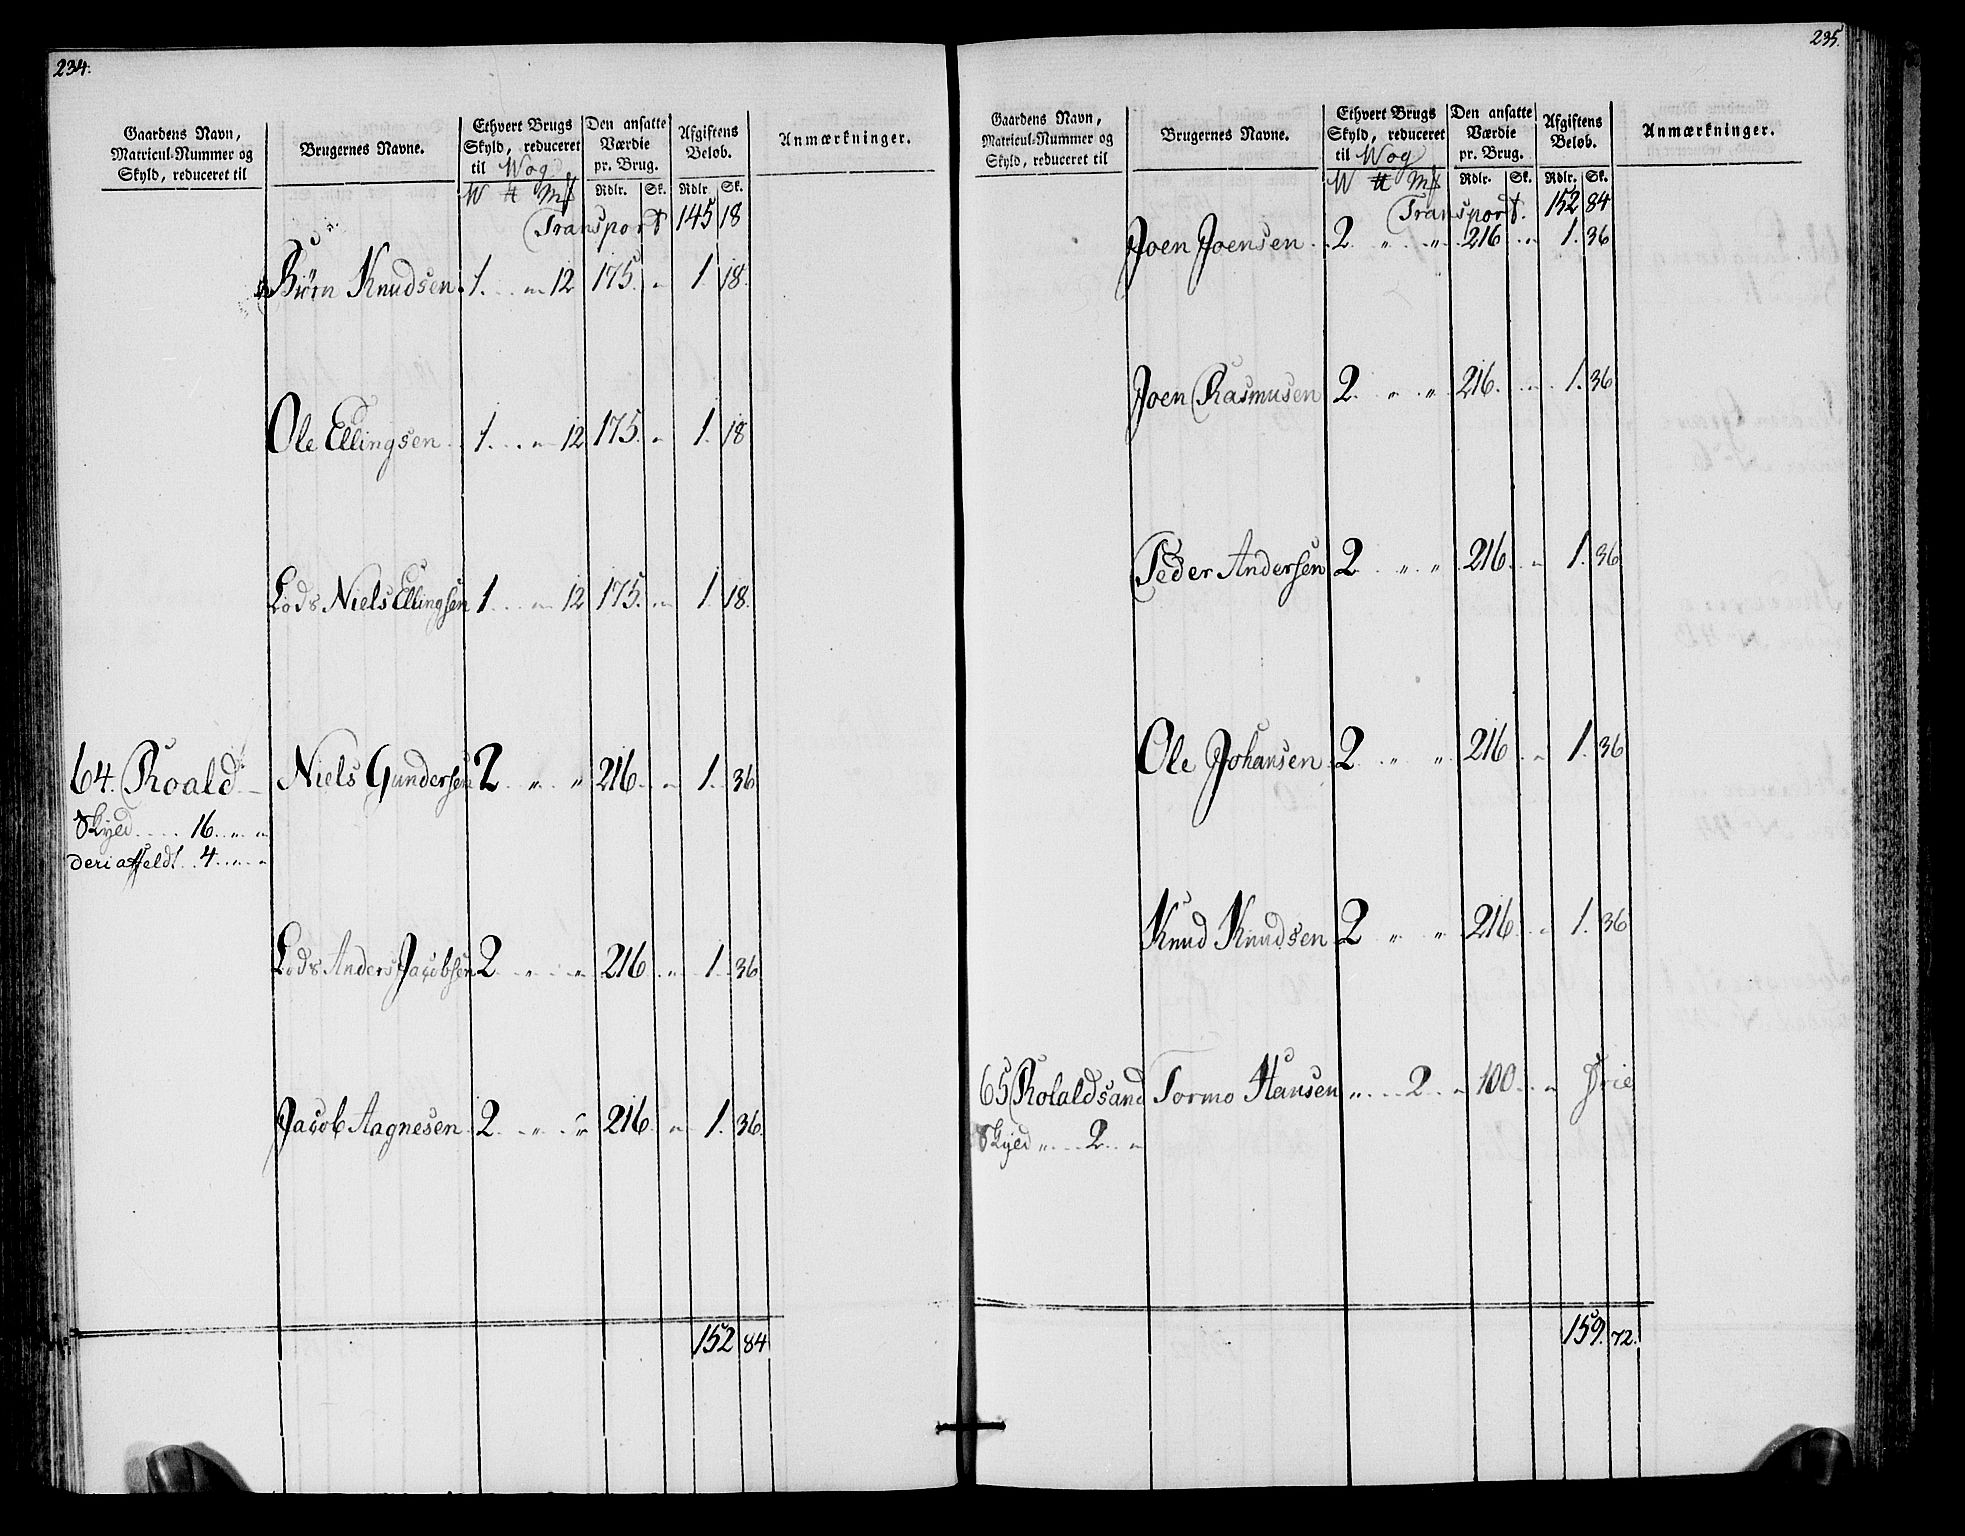 234.
Gaardens Navn, Matricul-Nummer og Skyld, reduceret til
Brugernes Navne.
Ethvert Brugs Skyld, reduceret til Wog
Den ansatte Værdie pr. Brug.
Afgiftens Beløb.
Anmærkninger.
W # Mk Rdlr. Sk. Rdlr. Sk.
Transport 145 18
Biørn Knudsen. 1. „ 12 175. „ 1. 18.
Ole Ellingsen 1. „ 12 175. „ 1. 18
Lods Niels Ellingsen 1 „ 12 175. „ 1. 18.
64. Roald Niels Gundersen 2 „ „ 216 „ 1. 36.
Skyld 16 „ „
deri affeldt 4 „ „
Lods Anders Jacobsen 2 „ „ 216 „ 1. 36.
Jacob Aagnesen 2 „ „ 216 „ 1. 36.
152 84
235.
Gaardens Navn, Matricul-Nummer og Skyld, reduceret til
Brugernes Navne.
Ethvert Brugs Skyld, reduceret til Wog
Den ansatte Værdie pr. Brug.
Afgiftens Beløb.
Anmærkninger.
W # Mk Rdlr. Sk. Rdlr. Sk.
Transport. 152 84
Joen Joensen 2 „ „ 216 „ 1. 36
Joen Rasmusen 2 „ „ 216. „ 1. 36
Peder Andersen 2 „ „ 216 „ 1. 36
Ole Johansen 2 „ „ 216 „ 1. 36
Knud Knudsen 2 „ „ 216 „ 1. 36
65 Rolaldsand Tormo Hansen „ 2 „ 100 „ Frie
Skyld „ 2 „
159. 72.